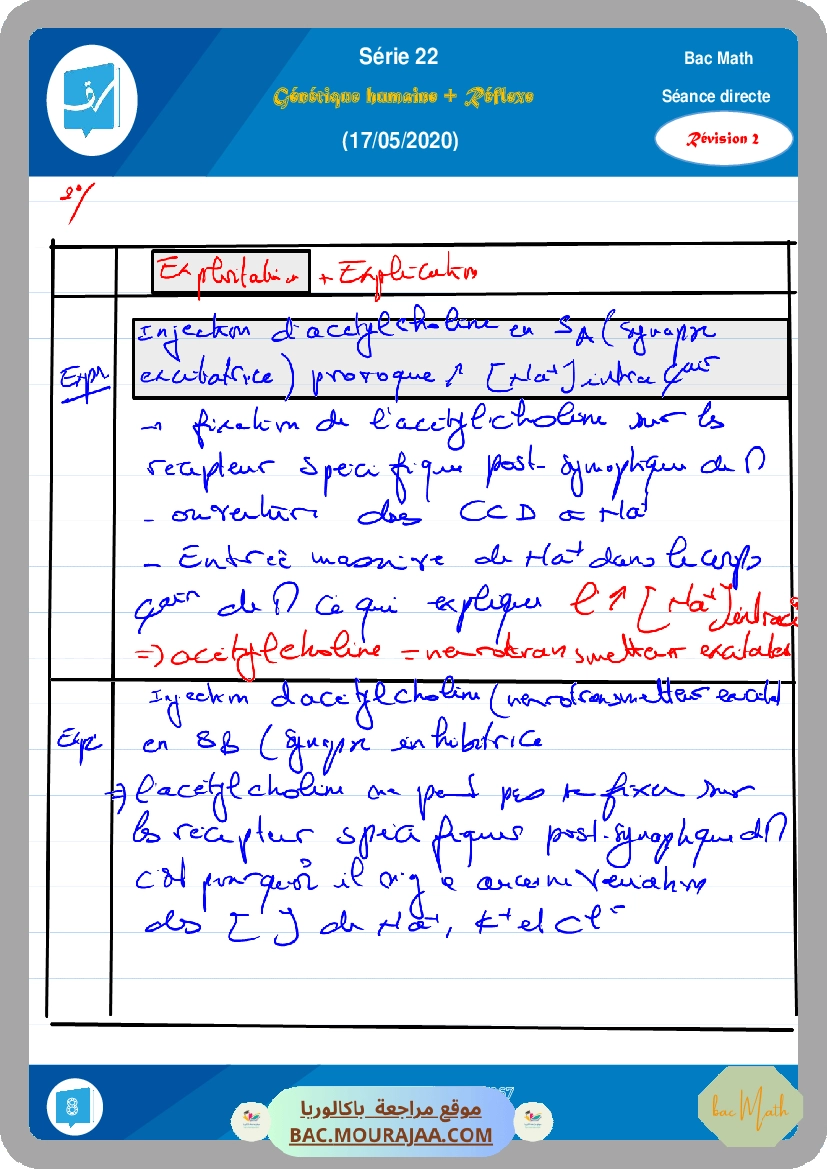 Série 22
Bac Math
Génétique humaine + Réflexe
Séance directe
(17/05/2020)
Révision 2
2°/
Exploitation + Explication
Exp1
Injection d'acétylcholine en SA (synapse
excitatrice) provoque ↑ [Na+] intra çair
→ fixation de l'acétylcholine sur ls
récepteur spécifique post-synaptique du Π
- ouverture des CCD a Na+
- Entreé massive de Na+ dans le corps
çair du Π ce qui explique l'↑ [Na+] intrac
=> acétylcholine = neurotransmetteur excitateur
Exp2
Injection d'acétylcholine (neurotransmetteur excitat
en SB (synapse inhibitrice
=> l'acétylcholine ne peut pas se fixer sur
ls récepteur spécifiques post-synaptique du Π
c'est pourquoi il n'y a aucune variation
des [ ] de Na+, K+ et Cl-
8
موقع مراجعة باكالوريا
BAC.MOURAJAA.COM
bac Math